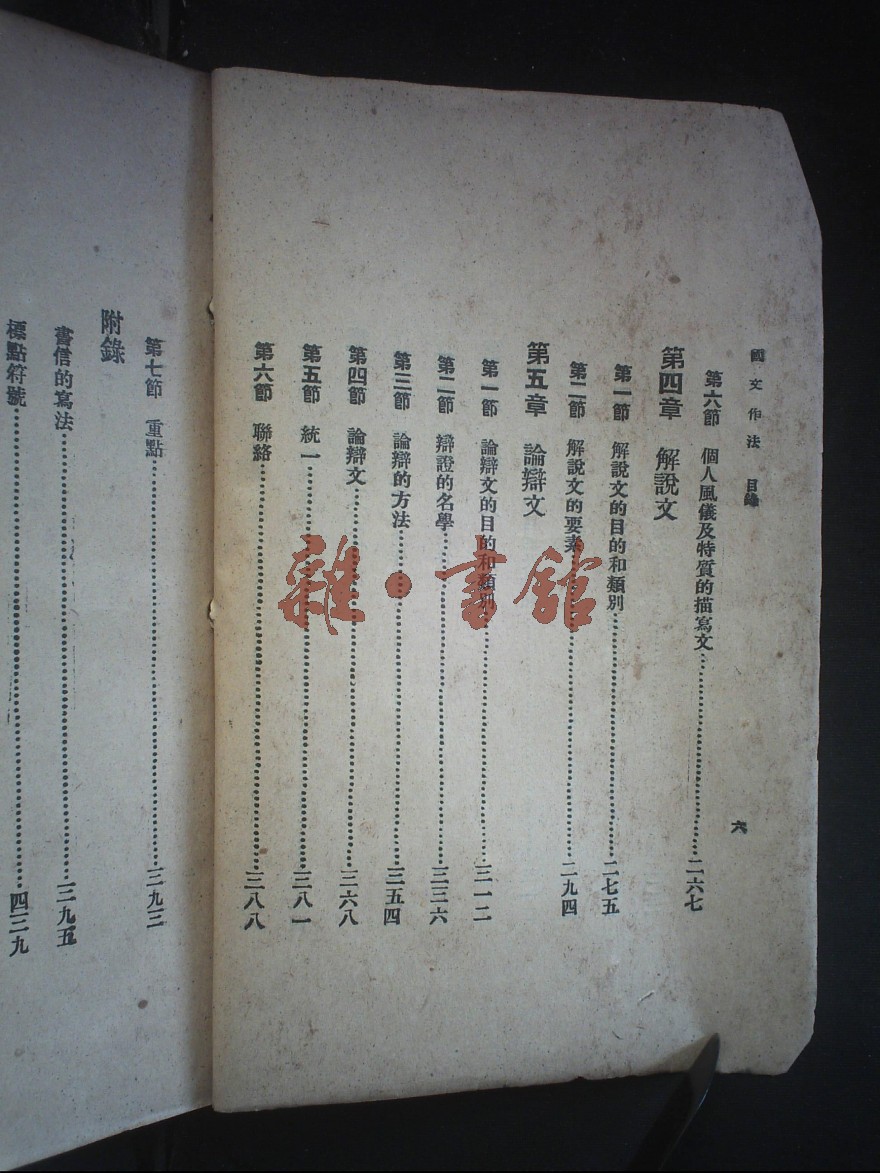 國文作法 目錄
六
第六節 個人風儀及特質的描寫文…二六七
第四章 解說文
第一節 解說文的目的和類別…二七五
第二節 解說文的要素…二九四
第五章 論辯文
第一節 論辯文的目的和類別…三一二
第二節 辯證的名學…三三六
第三節 論辯的方法…三五四
第四節 論辯文…三六八
第五節 統一…三八一
第六節 聯絡…三八八
第七節 重點…三九三
附錄
書信的寫法…三九五
標點符號…四三九
雜·書館